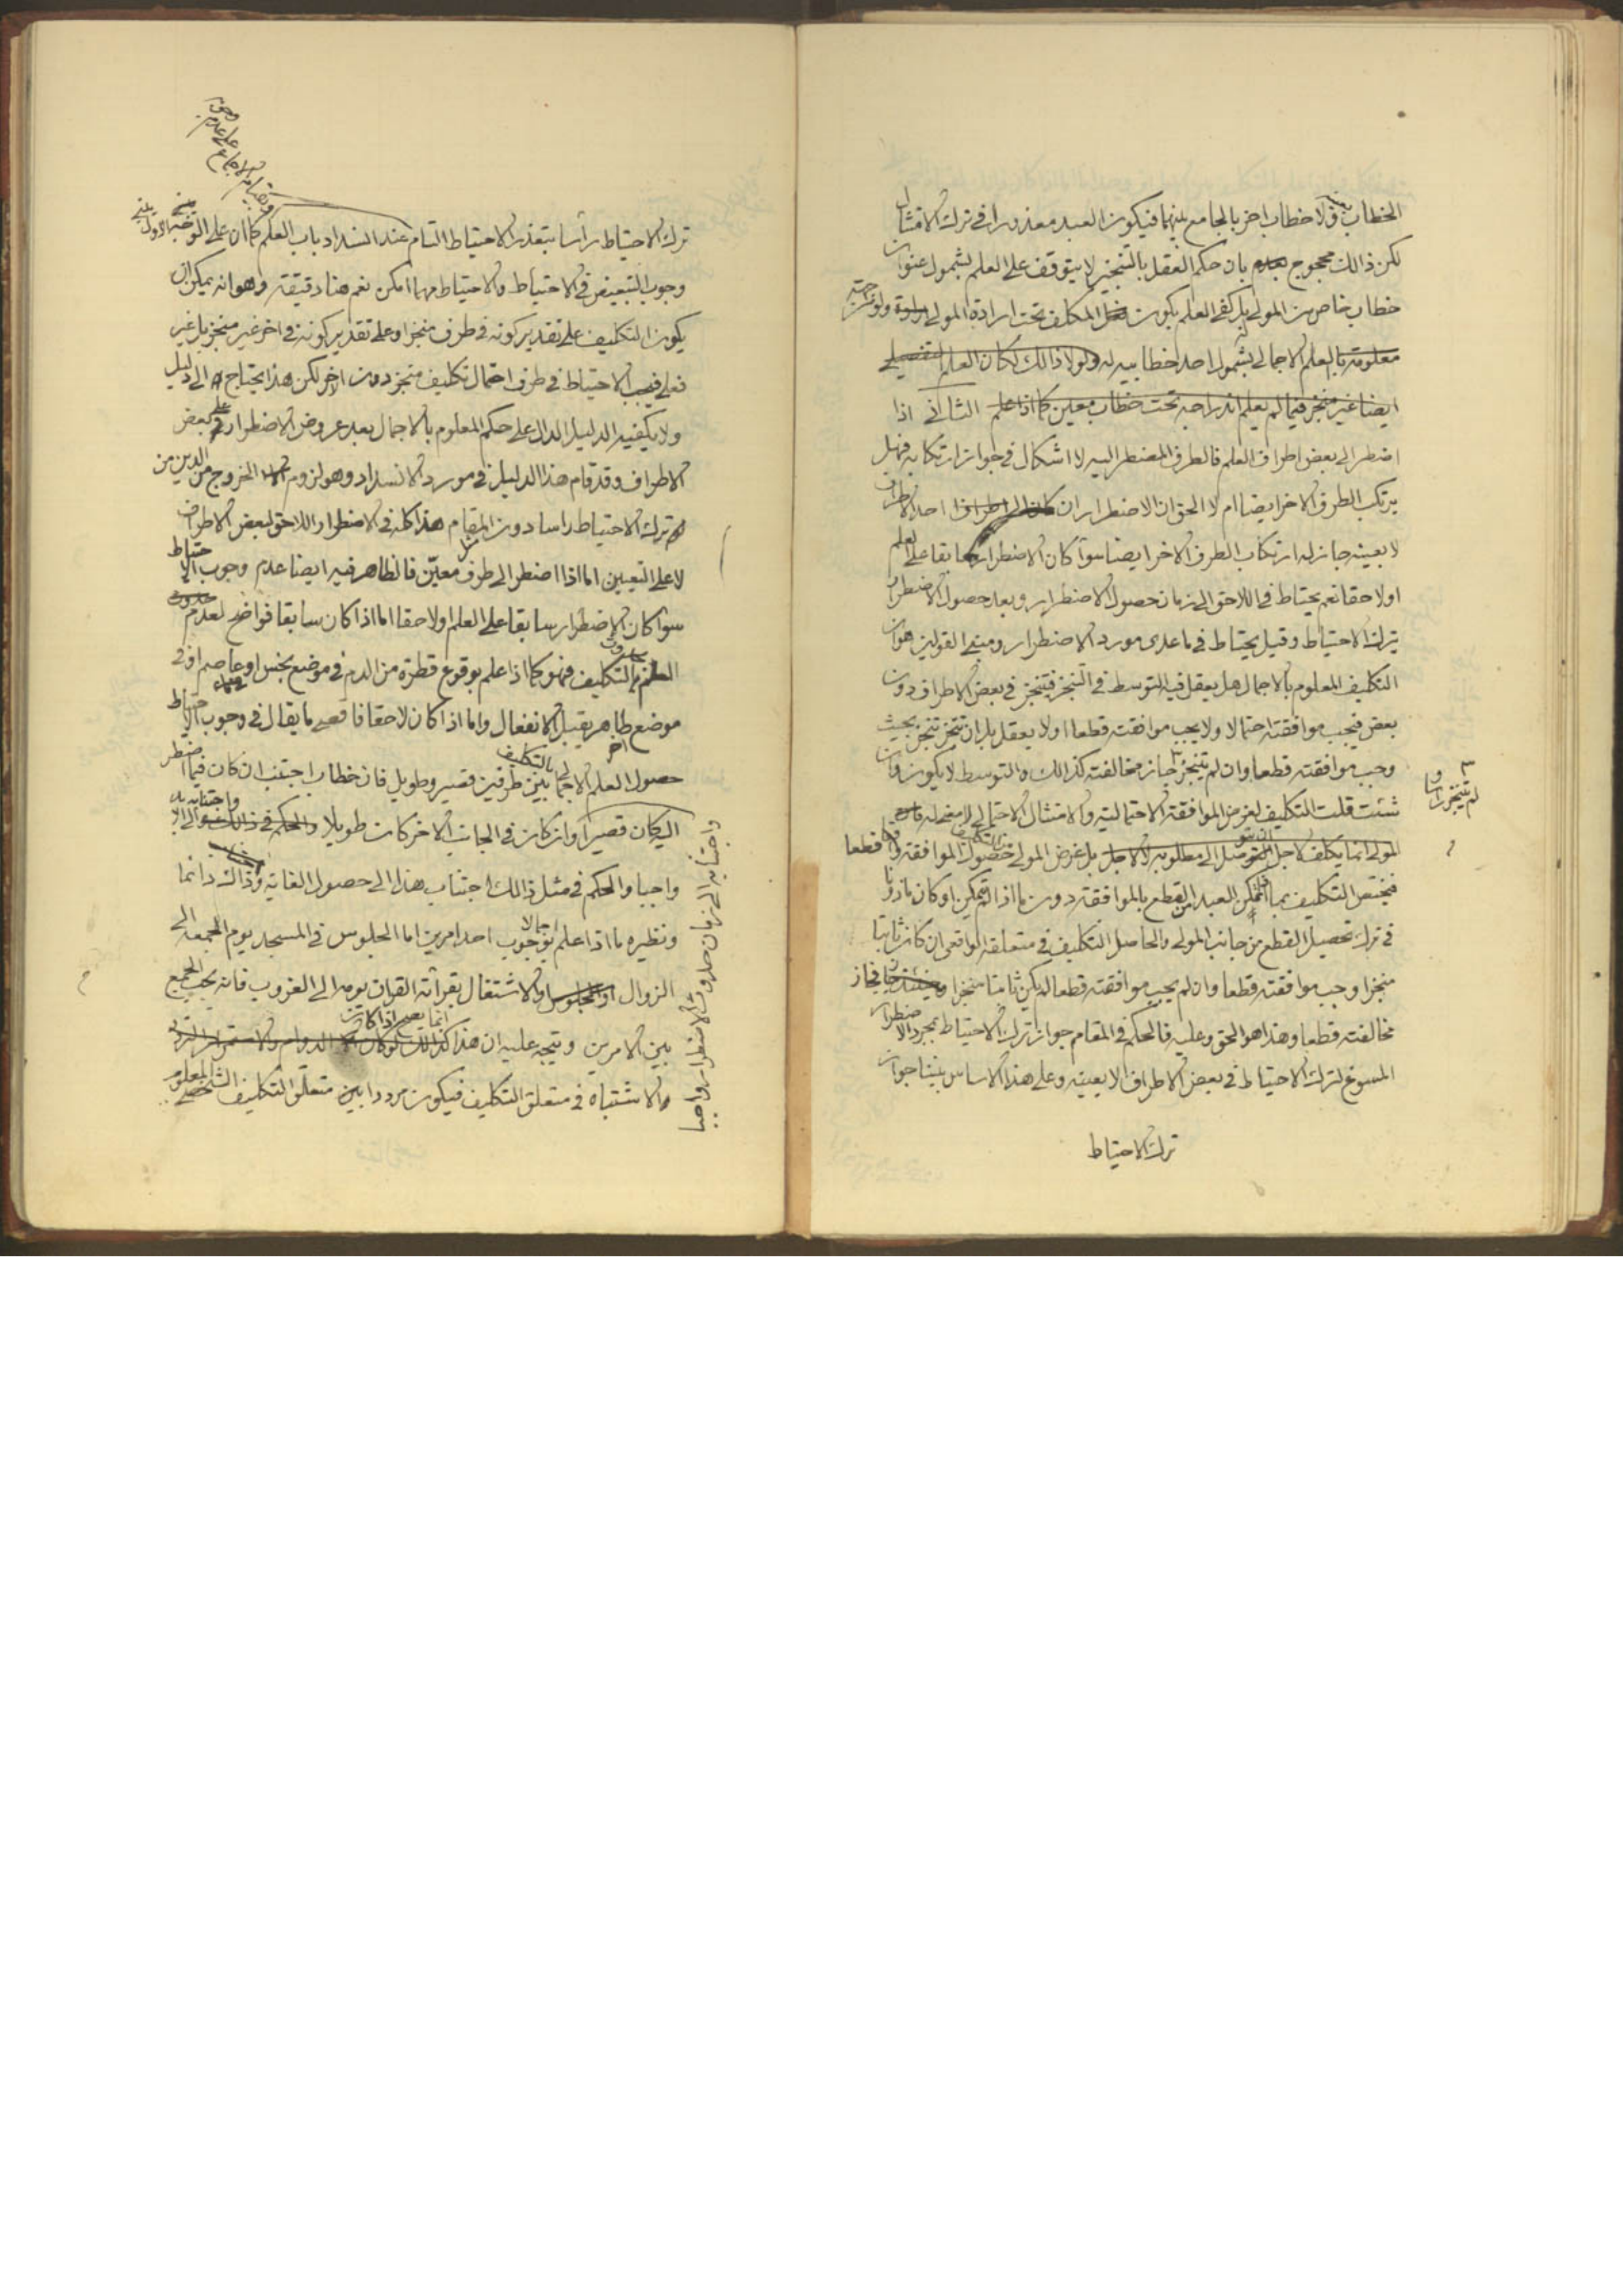 الخطاب بعينه ولا خطاب اخر بالجامع بينهما فيكون العبد معذورا في ترك الامتثال
لكن ذالك محجوج بان حكم العقل بالتنجيز لا يتوقف على العلم بشمول عنوان
خطاب خاص من المولى بل يكفي العلم بكون المكلف تحت ارادة المولى ولو
معلومة بالعلم الاجمالي بشمول احد خطابيه له ولولا ذالك لكان العلم التفصيلي
ايضا غير منجز فيما لم يعلم اندراجه تحت خطاب معين كما اذا علم الثاني اذا
اضطر الى بعض اطراف العلم فالطرف المضطر اليه لا اشكال في جواز ارتكابه فهل
يرتكب الطرف الاخر ايضا ام لا الحق ان الاضطرار ان كان الى احد الاطراف
لا بعينه جاز له ارتكاب الطرف الاخر ايضا سوآ كان الاضطرار سابقا على العلم
او لاحقا نعم يحتاط في اللاحق الى زمان حصول الاضطرار وبعد حصول الاضطرار
يترك الاحتياط وقيل يحتاط في ما عدى مورد الاضطرار ومبنى القولين هو ان
التكليف المعلوم بالاجمال هل يعقل فيه التوسط في التنجز فيتنجز في بعض الاطراف دون
بعض فيجب موافقته احتمالا ولا يجب موافقته قطعا او لا يعقل بل ان تنجز تنجز بحيث
وجب موافقته قطعا وان لم يتنجز جاز مخالفته كذالك والتوسط لا يكون وان
لم يتنجز راسا
شئت قلت التكليف لغرض الموافقة الاحتمالية والامتثال الاحتمالي لا معنى له فان
المولى انما يكلف لاجل التوصل الى مطلوبه بل غرض المولى حصول الموافقة قطعا
فيختص التكليف بما اذا تمكن العبد من القطع بالموافقة دون ما اذا لم يتمكن او كان ماذونا
في ترك تحصيل القطع من جانب المولى والحاصل التكليف في متعلقه الواقعي ان كان ثابتا
منجزا وجب موافقته قطعا وان لم يجب موافقته قطعا لم يكن ثابتا منجزا فجاز
مخالفته قطعا وهذا هو الحق وعليه فالحكم في المقام جواز ترك الاحتياط بمجرد الاضطرار
المسوغ لترك الاحتياط في بعض الاطراف لا بعينه وعلى هذا الاساس بنينا جواز
ترك الاحتياط
ترك الاحتياط راسا بتعذر الاحتياط التام عند انسداد باب العلم كما ان على
وجوب التبعيض في الاحتياط والاحتياط مهما امكن نعم هنا دقيقة وهو انه يمكن ان
يكون التكليف على تقدير كونه في طرف منجزا وعلى تقدير كونه في اخر غير منجز
فيجب الاحتياط في طرف احتمال تكليف منجز دون اخر لكن هذا يحتاج الى دليل
ولا يكفيه الدليل الدال على حكم المعلوم بالاجمال بعد عروض الاضطرار في بعض
الاطراف وقد قام هذا الدليل في مورد الانسداد وهو لزوم الخروج من الدين من
ترك الاحتياط راسا دون المقام هذا كله في الاضطرار اللاحق لبعض الاطراف
لا على التعيين اما اذا اضطر الى طرف معيّن فالظاهر فيه ايضا عدم وجوب الاحتياط
سوآ كان الاضطرار سابقا على العلم او لاحقا اما اذا كان سابقا فواضح لعدم
العلم بالتكليف فهو كما اذا علم بوقوع قطرة من الدم في موضع نجس او عاصم او في
موضع طاهر يقبل الانفعال واما اذا كان لاحقا فاقصى ما يقال في وجوب الاحتياط
حصول العلم الاجمالي بالتكليف بين طرفين قصير وطويل فان خطاب اجتنب ان كان فيما اضطر
اليه كان قصيرا وان كان في الجانب الاخر كان طويلا
واجتنابه الى زمان حدوث الاضطرار واجبا
واجبا والحكم في مثل ذالك اجتناب هذا الى حصول الغاية وذاك دائما
ونظيره ما اذا علم اجمالا بوجوب احد امرين اما الجلوس في المسجد يوم الجمعه الى
الزوال او الاشتغال بقرائة القران يومه الى الغروب فانه يجب الجمع
بين الامرين ويتجه عليه ان هذا انما يصح اذا كان
والاشتباه في متعلق التكليف فيكون مرددا بين متعلّق التكليف الشخصي المعلوم